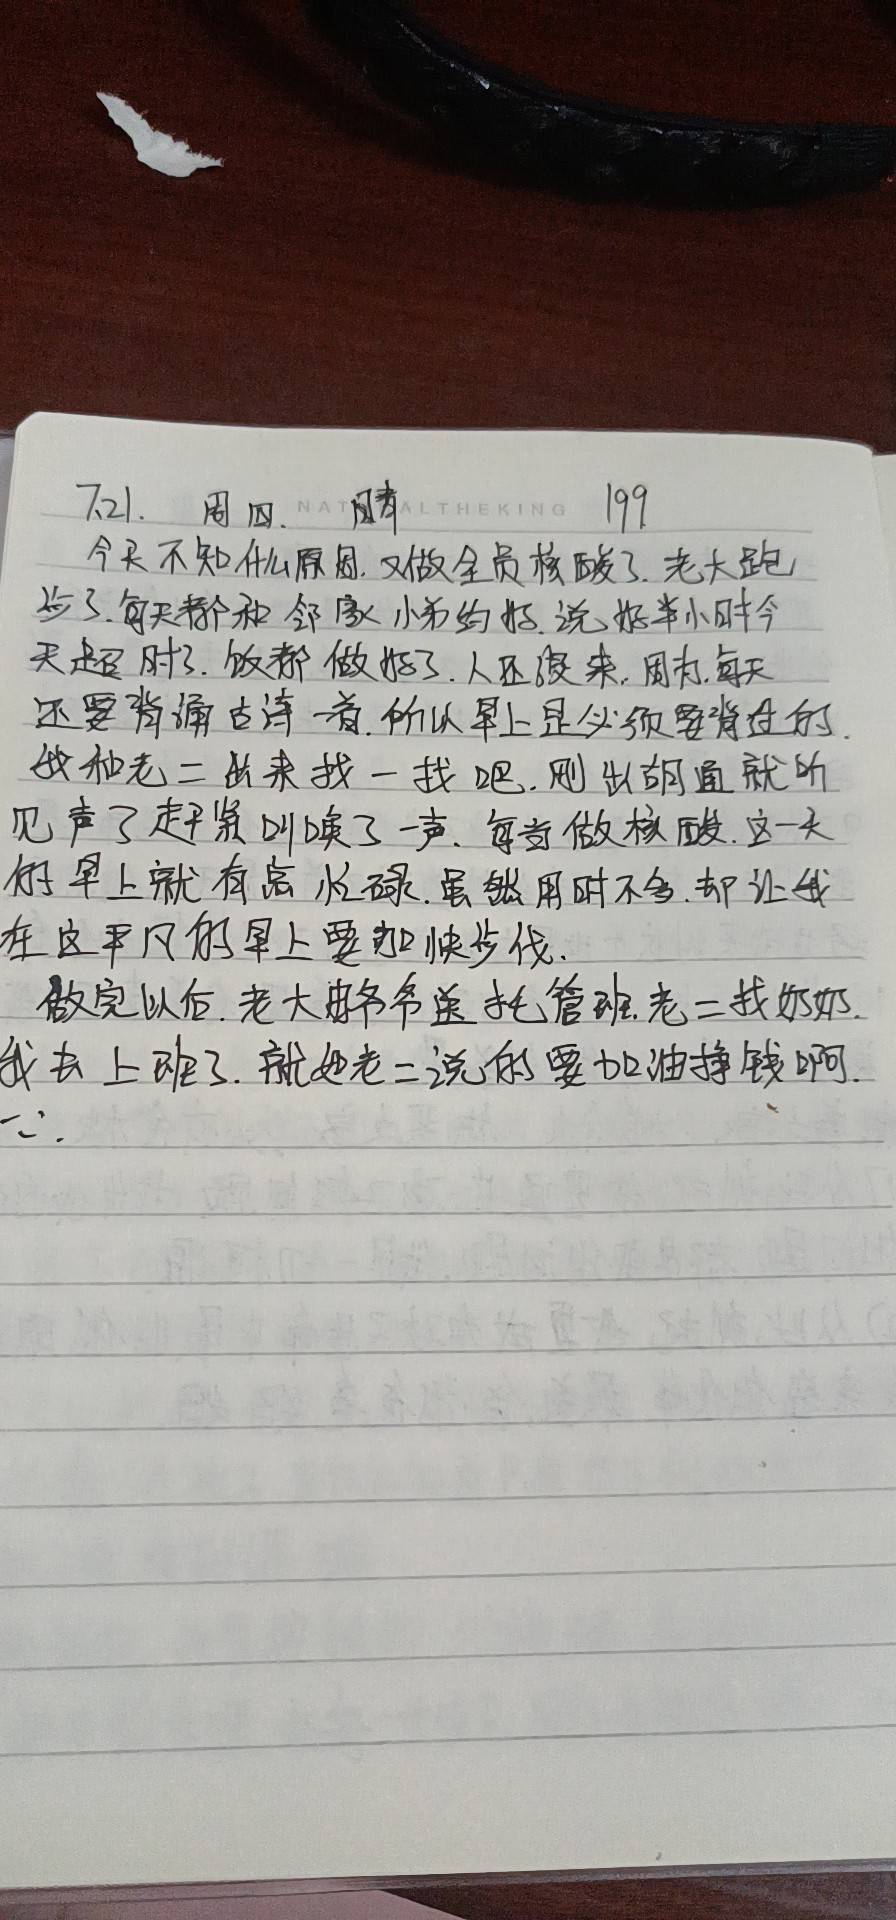 7.21. 周四. 晴 199
NATURALTHEKING
今天不知什么原因.又做全员核酸了.老大跑
步了.每天都和邻家小弟约好.说好半小时今
天超时了.饭都做好了.人还没来.因为.每天
还要背诵古诗一首.所以早上是必须要背过的.
我和老二出来找一找吧.刚出胡同就听
见声了赶紧叫唤了一声.每当做核酸.这一天
的早上就有点忙碌.虽然用时不多.却让我
在这平凡的早上要加快步伐.
做完以后.老大由爷爷送托管班.老二找奶奶.
我去上班了.就如老二说的要加油挣钱啊.